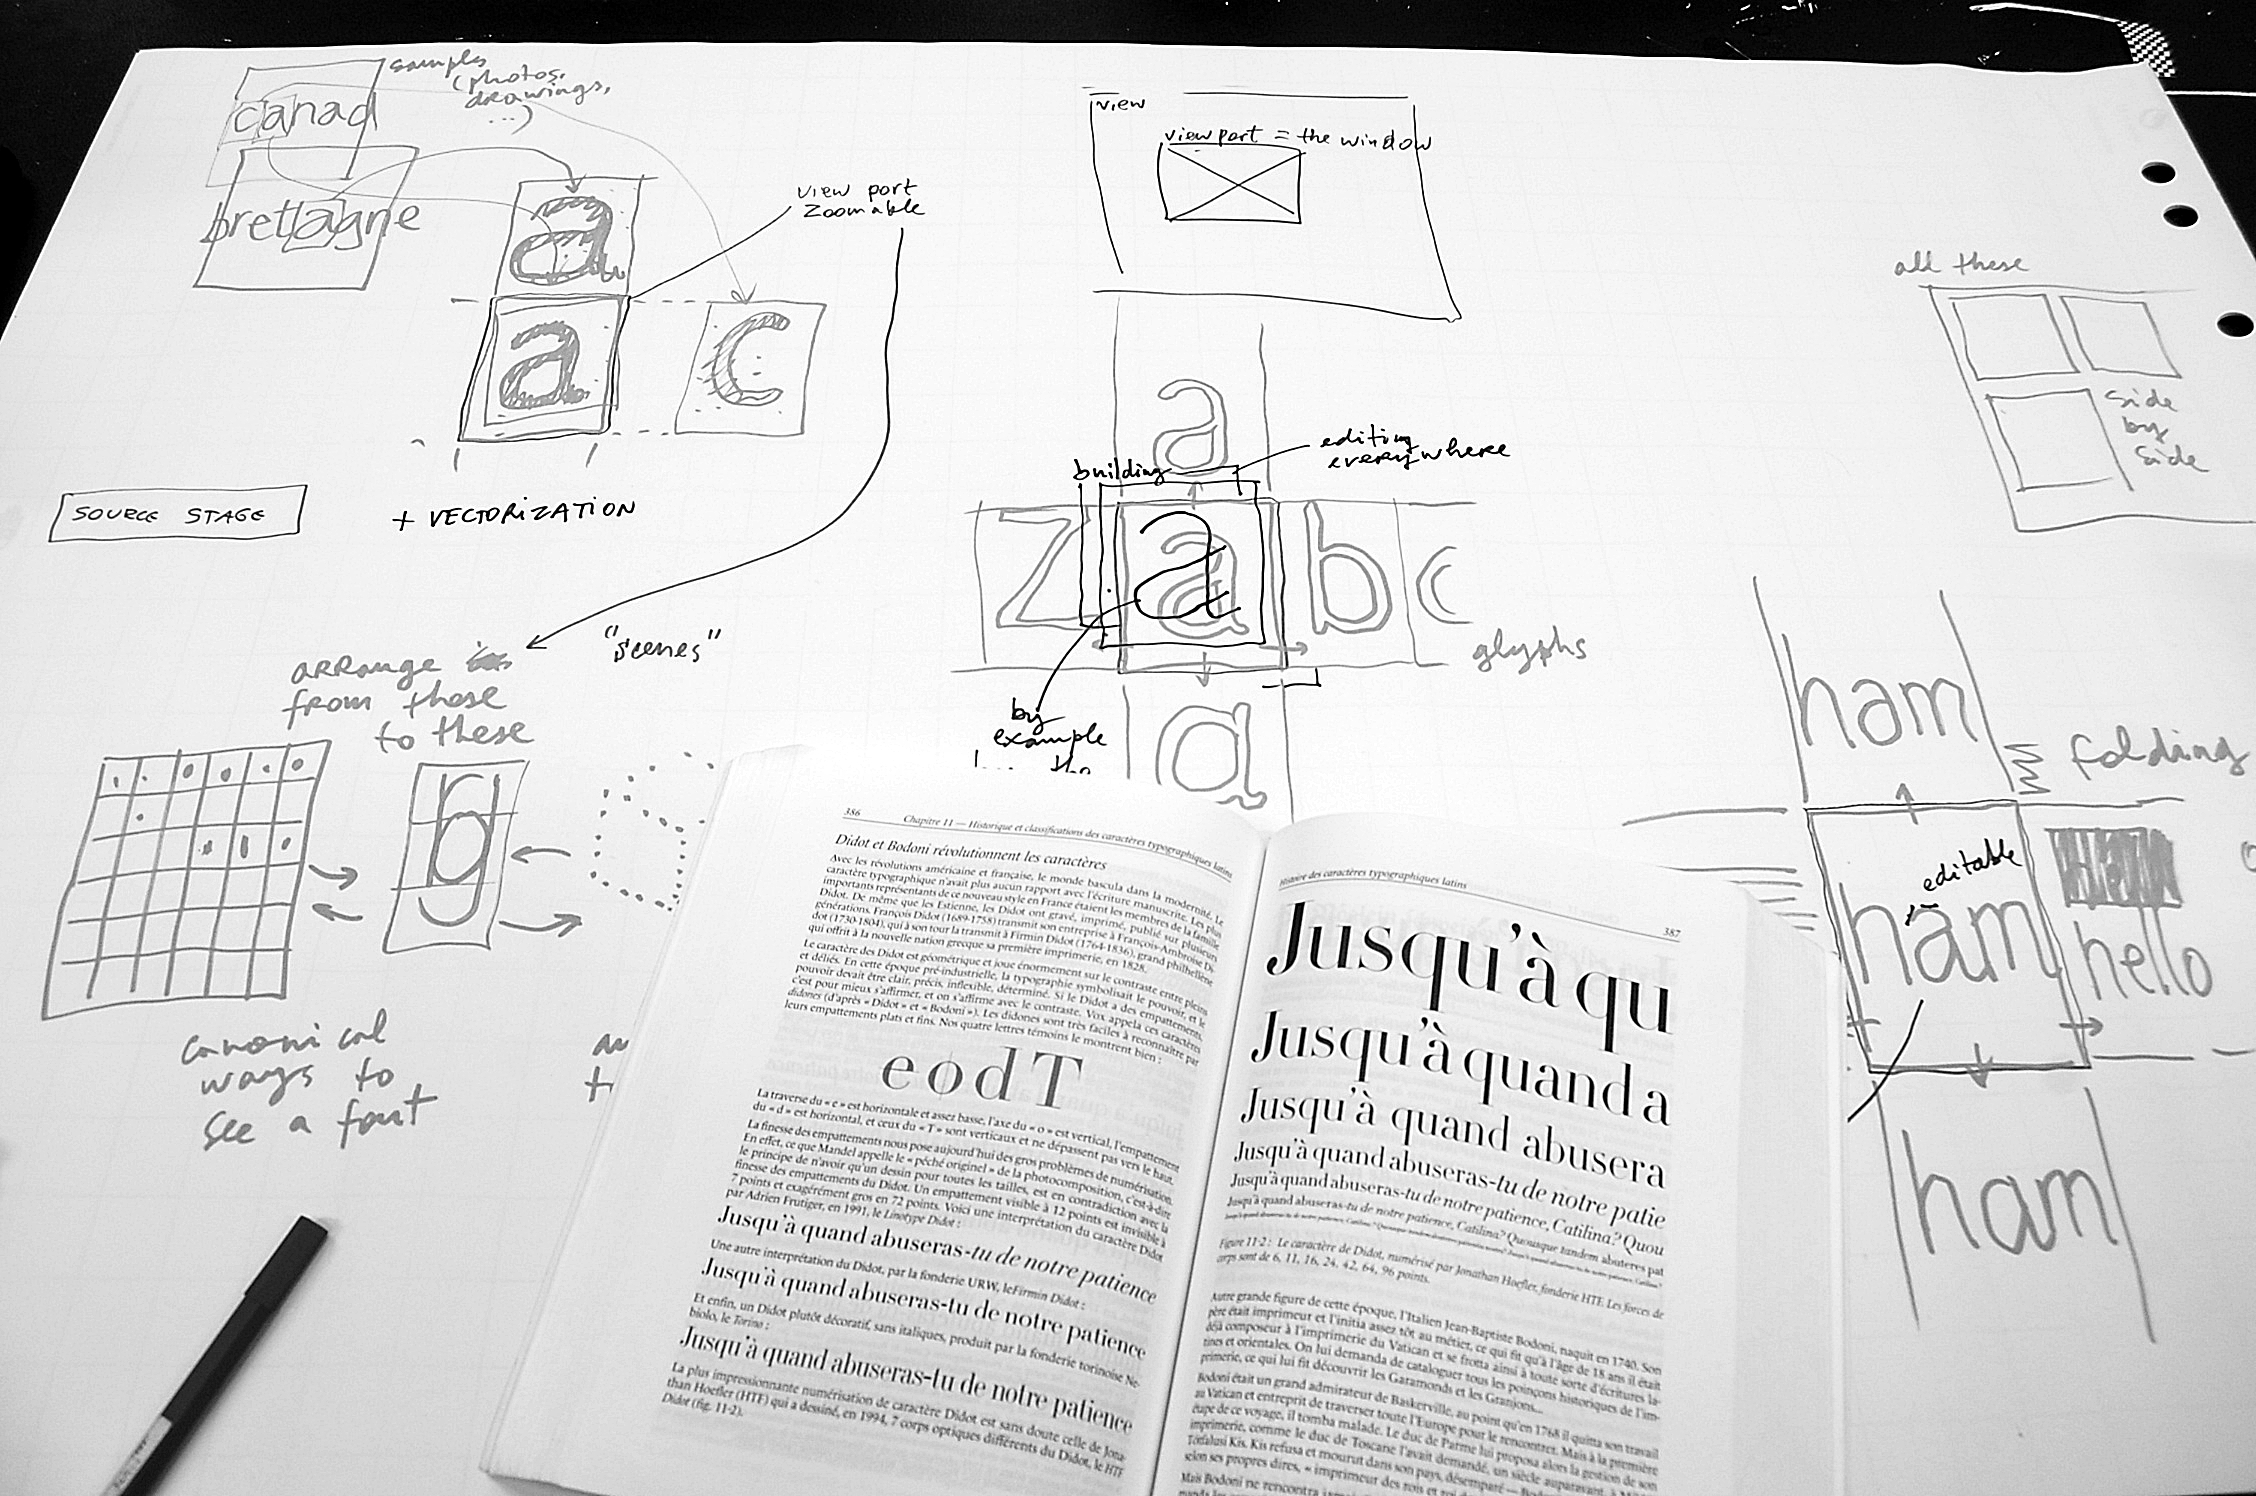 samples
(photos,
drawings,
...)
canad
bretagne
a
a
c
view port
zoomable
SOURCE STAGE
+ VECTORIZATION
view
view port = the window
a
building
editing
everywhere
z
a
b
c
glyphs
by
example
a
all these
side
by
side
"scenes"
arrange
from these
to these
canonical
ways to
see a font
ham
folding
editable
ham
hello
ham
386
Chapitre 11 — Historique et classifications des caractères typographiques latins
Didot et Bodoni révolutionnent les caractères
Avec les révolutions américaine et française, le monde bascula dans la modernité. Le
caractère typographique n'avait plus aucun rapport avec l'écriture manuscrite. Les plus
importants représentants de ce nouveau style en France étaient les membres de la famille
Didot. De même que les Estienne, les Didot ont gravé, imprimé, publié sur plusieurs
générations. François Didot (1689-1758) transmit son entreprise à François-Ambroise Di-
dot (1730-1804), qui à son tour la transmit à Firmin Didot (1764-1836), grand philhellène
qui offrit à la nouvelle nation grecque sa première imprimerie, en 1828.
Le caractère des Didot est géométrique et joue énormément sur le contraste entre pleins
et déliés. En cette époque pré-industrielle, la typographie symbolisait le pouvoir, et le
pouvoir devait être clair, précis, inflexible, déterminé. Si le Didot a des empattements,
c'est pour mieux s'affirmer, et on s'affirme avec le contraste. Vox appela ces caractères
didones (d'après « Didot » et « Bodoni »). Les didones sont très faciles à reconnaître par
leurs empattements plats et fins. Nos quatre lettres témoins le montrent bien :
e o d T
La traverse du « e » est horizontale et assez basse, l'axe du « o » est vertical, l'empattement
du « d » est horizontal, et ceux du « T » sont verticaux et ne dépassent pas vers le haut.
La finesse des empattements nous pose aujourd'hui des gros problèmes de numérisation.
En effet, ce que Mandel appelle le « péché originel » de la photocomposition, c'est-à-dire
le principe de n'avoir qu'un dessin pour toutes les tailles, est en contradiction avec la
finesse des empattements du Didot. Un empattement visible à 12 points est invisible à
7 points et exagérément gros en 72 points. Voici une interprétation du caractère Didot
par Adrien Frutiger, en 1991, le Linotype Didot :
Jusqu'à quand abuseras-tu de notre patience
Une autre interprétation du Didot, par la fonderie URW, le Firmin Didot :
Jusqu'à quand abuseras-tu de notre patience
Et enfin, un Didot plutôt décoratif, sans italiques, produit par la fonderie torinoise Ne-
biolo, le Torino :
Jusqu'à quand abuseras-tu de notre patience
La plus impressionnante numérisation de caractère Didot est sans doute celle de Jona-
than Hoefler (HTF) qui a dessiné, en 1994, 7 corps optiques différents du Didot, le HTF
Didot (fig. 11-2).
Histoire des caractères typographiques latins
387
Jusqu'à qu
Jusqu'à quand a
Jusqu'à quand abusera
Jusqu'à quand abuseras-tu de notre patie
Jusqu'à quand abuseras-tu de notre patience, Catilina? Quou
Jusqu'à quand abuseras-tu de notre patience, Catilina? Quousque tandem abuteres pat
Figure 11-2 : Le caractère de Didot, numérisé par Jonathan Hoefler, fonderie HTF. Les forces de
corps sont de 6, 11, 16, 24, 42, 64, 96 points.
Autre grande figure de cette époque, l'Italien Jean-Baptiste Bodoni, naquit en 1740. Son
père était imprimeur et l'initia assez tôt au métier, ce qui fit qu'à l'âge de 18 ans il était
déjà composeur à l'imprimerie du Vatican et se frotta ainsi à toute sorte d'écritures la-
tines et orientales. On lui demanda de cataloguer tous les poinçons historiques de l'im-
primerie, ce qui lui fit découvrir les Garamonds et les Granjons...
Bodoni était un grand admirateur de Baskerville, au point qu'en 1768 il quitta son travail
au Vatican et entreprit de traverser toute l'Europe pour le rencontrer. Mais à la première
étape de ce voyage, il tomba malade. Le duc de Parme lui proposa alors la gestion de son
imprimerie, comme le duc de Toscane l'avait demandé, un siècle auparavant, à
Tótfalusi Kis. Kis refusa et mourut dans son pays, désemparé —
selon ses propres dires, « imprimeur des rois et roi
Mais Bodoni ne rencontra